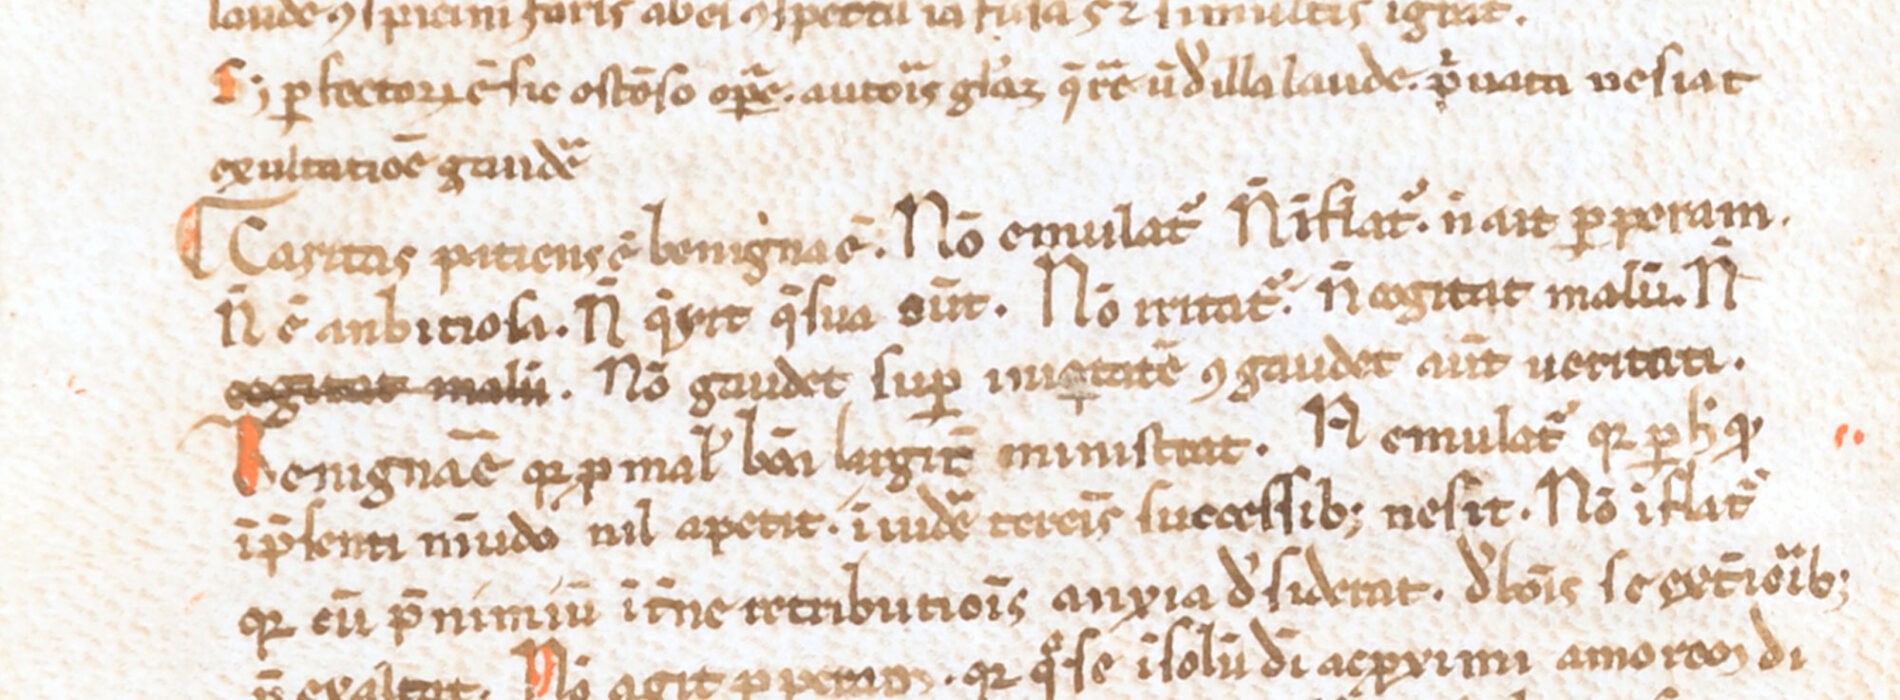 laude ꝯspicim foris ab ei ꝯspectu
Sꝫ ꝑfectoꝝ ē sic ostēso oꝑe. autoris gl̄az q̄rē ūd illa laude. p̄uata nesiat
exultatiōe gaudē
Caritas patiens ē benigna ē. Nō emulat᷑ N̄ īflat᷑. n̄ ait ꝑperam.
N̄ ē anbitiosa. N̄ q̄rit q̄ sua sūt. Nō irritat᷑. n̄ cogitat malū. N̄
cogitat malū. Nō gaudet suꝑ iniq̄tatē ꝯgaudet aūt ueritati.
Benigna ē qꝛ ꝓ mal bōa largit᷑ ministrat. N̄ emulat᷑ qꝛ ꝑ h ꝙ
ī p̄senti mūdo nil apetit. īuidē terenis successibꝫ nesit. Nō īflat᷑
qꝛ cū p̄mium īt̄ne retributiōis anxia dsiderat. d bōis se exterioribꝫ
n̄ exaltat. Nō agit ꝑperam. qꝛ q̄ se ī solū di ac pximi amorem di